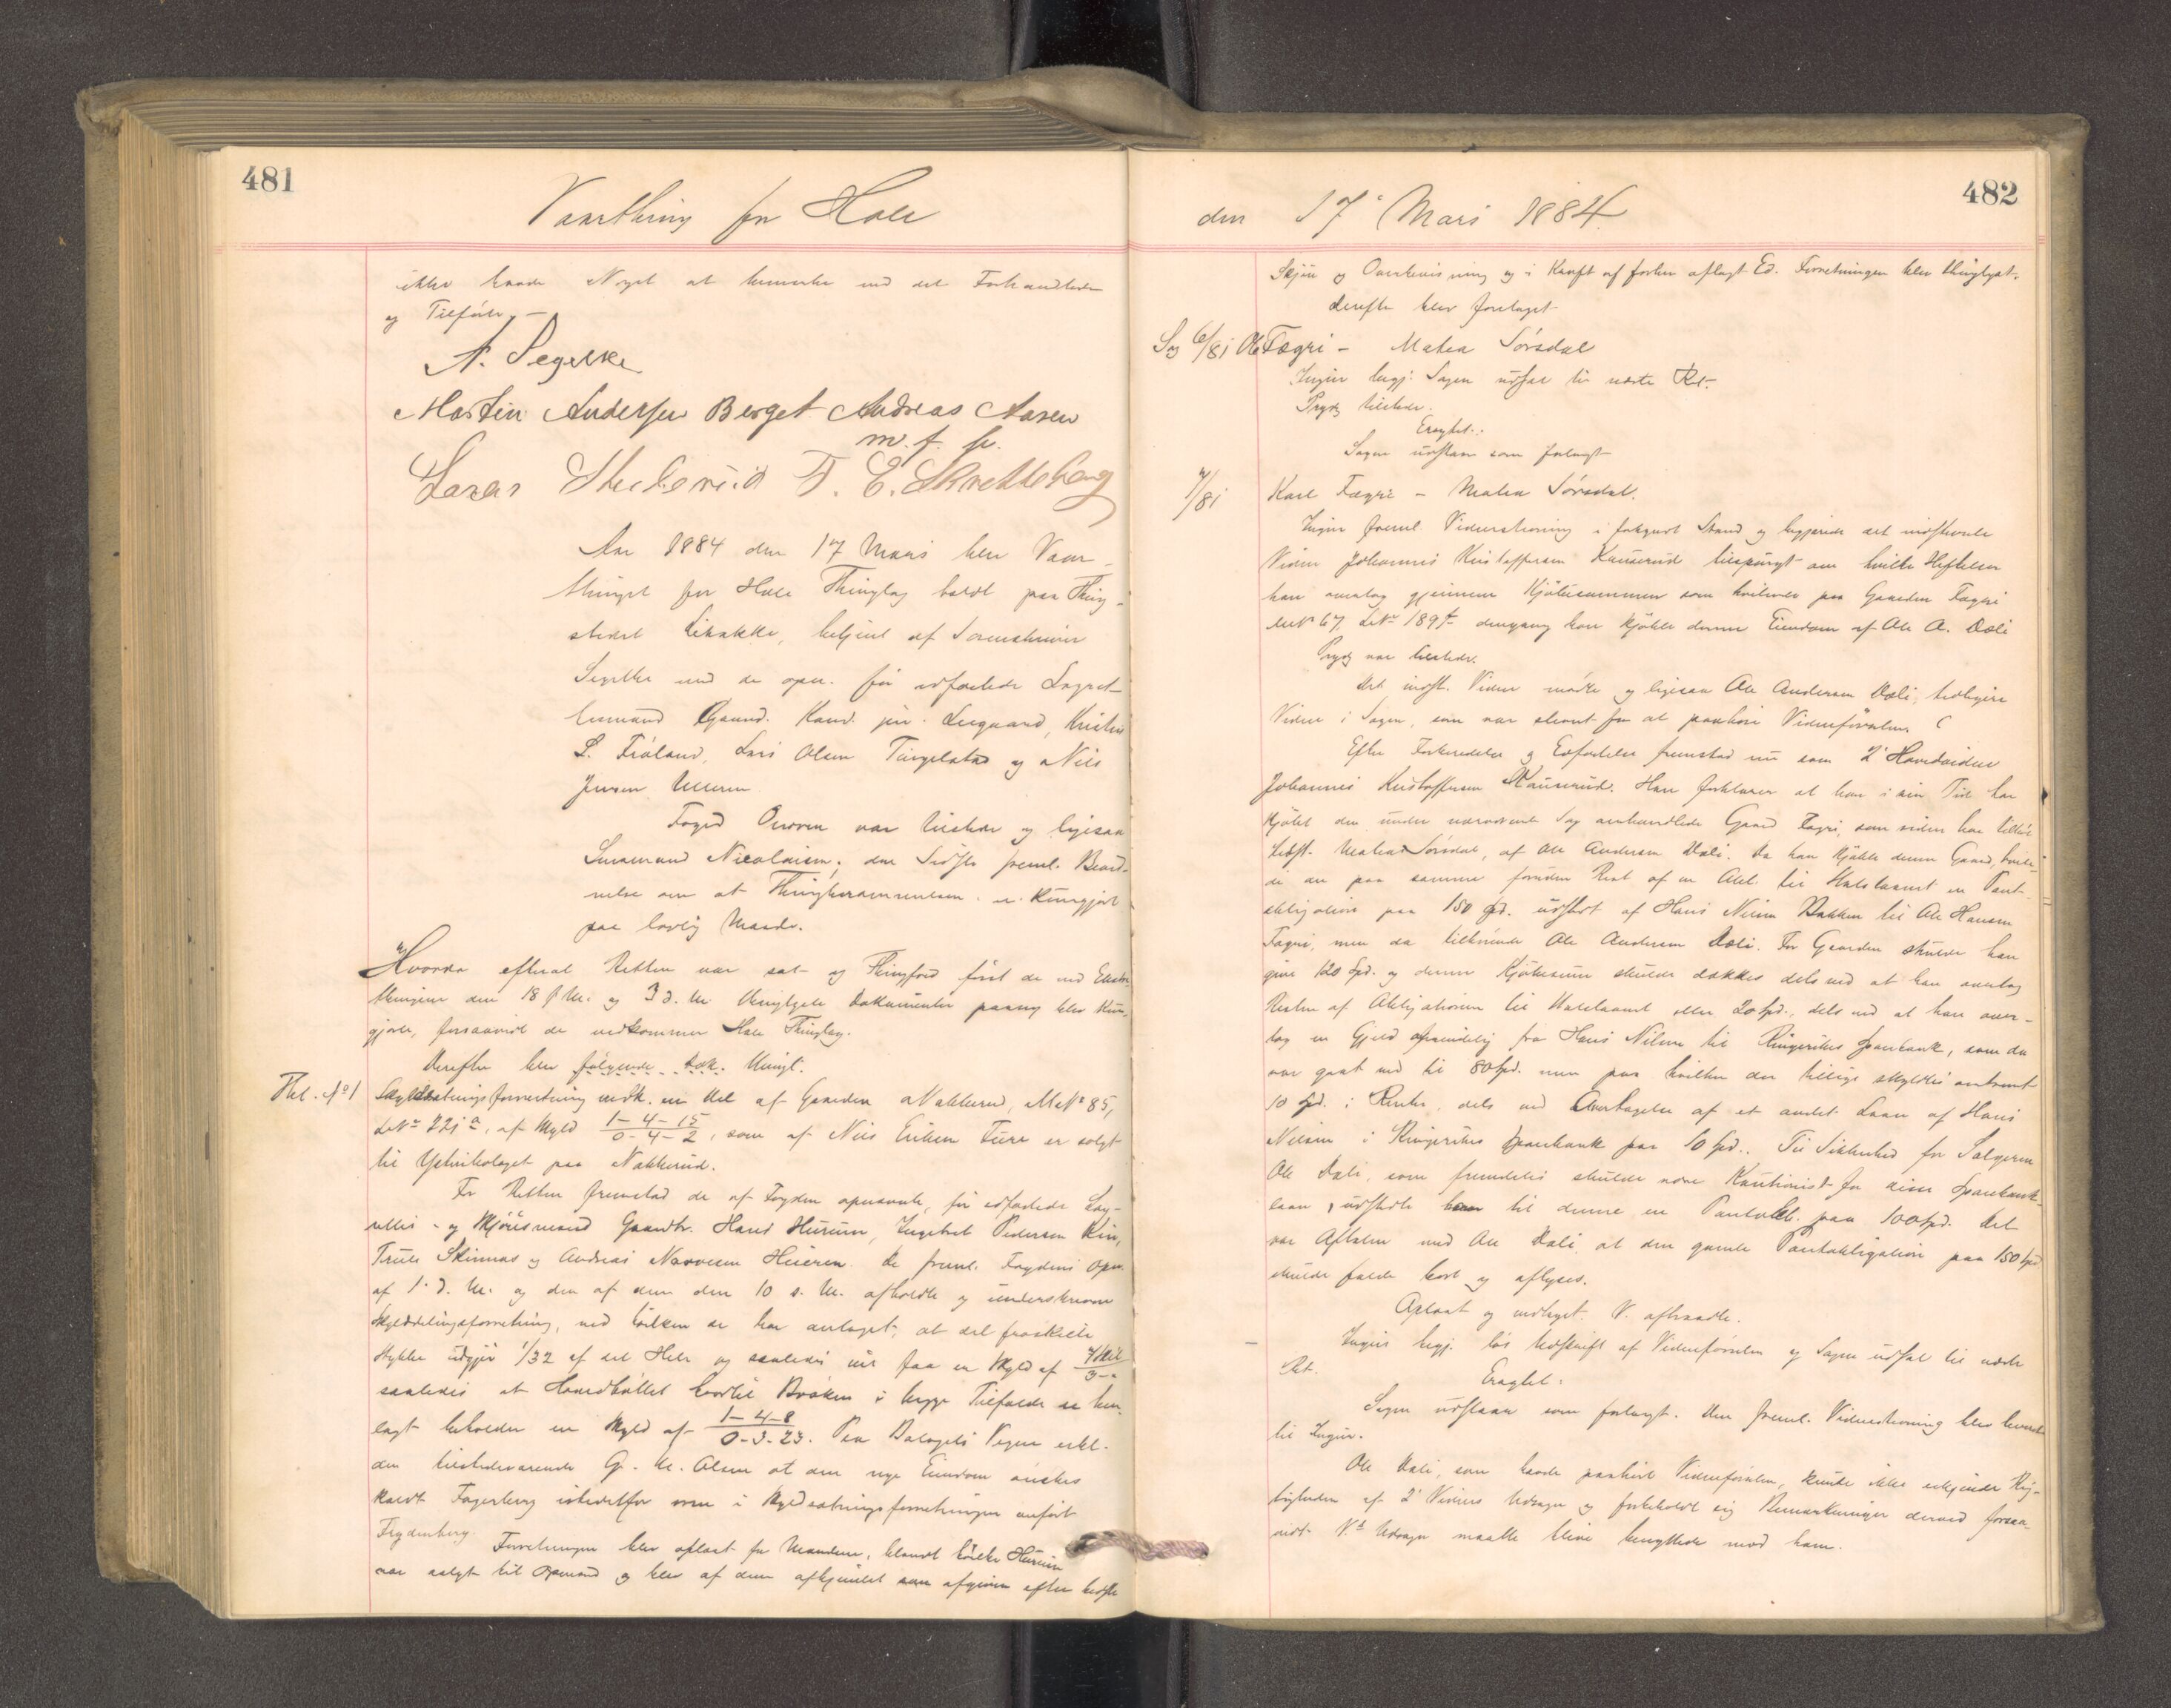 481
Vaarthing for Hole
ikke havde Noget at bemærke ved det Forhandlede
og Tilførte. —
A. Segelke
Martin Andersen Berget Andreas Aasen
m. f. p.
Lars T. E. Skretteberg
Aar 1884 den 17 Mars blev Vaar-
thinget for Hole Thinglag holdt paa Thing-
stedet betjent af Sorenskriver
Segelke med de opn. før edfæstede Lagret-
temænd Gaard. Hans jun. Kristen
L. Frøland, Lars Olsen Tingelstad og Nils
Jensen Ulleren
Foged var tilstede og ligesaa
Lensmand Nicolaisen; den Sidste freml. Beviid-
nelse om at er kungjort
paa lovlig Maade.
Hvorda efterat Retten var sat og Thingfred først de ved Extra-
thingene den 18 f. M. og 3 d. M. thinglyste Dokumenter paany blev kun-
gjorte, forsaavidt de vedkommer Hole Thinglag.
Derefter blev følgende Dok. thingl.
Thl. No 1 Skyldsætningsforretning vedk. en Del af Gaarden Nakkerud, M No 85,
L No 221 a, af Skyld 1-4-15 / 0-4-2, som af Nils Eriksen Ture er solgt
til Ysteribolaget paa Nakkerud.
For Retten fremstod de af Fogden opnævnte, før edfæstede Lag-
rettes- og Skjønsmænd Gaardbr. Hans Hurum, Ingebret Pedersen
Truls Skinnes og Andreas Narvesen Heieren. De freml. Fogdens Opn.
af 1 d. M. og den af dem den 10 s. M. afholdte og underskrevne
Skylddelingsforretning, ved hvilken de har antaget, at det fraskilte
Stykke udgjør 1/32 af det Hele og saaledes vil faa en Skyld af
saaledes at Hovedbøllet hvortil Brøken i begge Tilfælde er hen-
lagt beholder en Skyld af 1-4-8 / 0-3-23. Paa Bolagets Vegne erkl.
den tilstedeværende G. M. Olsen at den nye Eiendom ønskes
kaldt Fagerberg istedetfor som i Skyldsætningsforretningen anført
Frydenberg. Forretningen blev oplæst for Mændene, blandt hvilke Hurum
var valgt til Opmand og blev af dem afhjemlet som afgiven efter bedste
482
den 17 Mars 1884.
Skjøn og Overbevisning og i Kraft af forhen aflagt Ed. Forretningen blev thinglyst.
derefter blev foretaget
Sag 6/81 Ole Fagri — Mathea Sørsdal
begj. Sagen udsat til næste Ret.
Pryds tilstede.
Eragtet:
Sagen udstaar som forlangt
7/81 Karl Fagri — Mathea Sørsdal.
freml. Vidnestævning i forkyndt Stand og begjærede det indstevnte
Vidne Johannes Kristoffersen tilspurgt om hvilke Heftelser
han overtog gjennem Kjøbesummen som hvilende paa Gaarden Fagri
M No 67, L No 189 f dengang han kjøbte denne Eiendom af Ole A. Dæli
Pryds var tilstede.
Det indst. Vidne mødte og ligesaa Ole Andersen Dæli, tidligere
Vidne i Sagen, som var stevnt for at paahøre Vidneførselen.
Efter Forberedelse og Edfæstelse fremstod nu som 2' Hovedvidne
Johannes Kristoffersen Han forklarer at han i sin Tid har
kjøbt den under nærværende Sag omhandlede Gaard Fagri, som siden har tilhørt
Mathea Sørsdal, af Ole Andersen Dæli. Da han kjøbte denne Gaard, hvile-
de der paa samme foruden Rest af en Obl. til en Pant-
obligation paa 150 Spd. udstedt af Hans Nilsen Bakken til Ole Hansen
Fagri, men da tilhørende Ole Andersen Dæli. For Gaarden skulde han
give 120 Spd. og denne Kjøbesum skulde dækkes dels ved at han overtog
Resten af Obligationen til eller 20 Spd., dels ved at han over-
tog en Gjeld oprindelig fra Hans Nilsen til Ringerikes Sparebank, som da
var gaaet ned til 80 Spd. men paa hvilken der tillige skyldtes omtrent
10 Spd. i Renter, dels ved Overtagelse af et andet Laan af Hans
Nilsen i Ringerikes Sparebank paa 10 Spd.. Til Sikkerhed for Sælgeren
Ole Dæli, som fremdeles skulde være Kautionist for disse Sparebank-
laan, udstedte han til denne en Pantobl. paa 100 Spd. Det
var Aftalen med Ole Dæli, at den gamle Pantobligation paa 150 Spd
skulde falde bort og aflyses.
Oplæst og vedtaget. V. aftraadte.
begj. løs Udskrift af Vidneførselen og Sagen udsat til næste
Ret.
Eragtet:
Sagen udstaar som forlangt. Den freml. Vidnestævning blev leveret
til
Ole Dæli, som havde paahørt Vidneførselen, kunde ikke erkjende Rig-
tigheden af 2' Vidnes Udsagn og forbeholdt sig Bemærkninger derved forsaa-
vidt V.s Udsagn maatte blive benyttede mod ham.